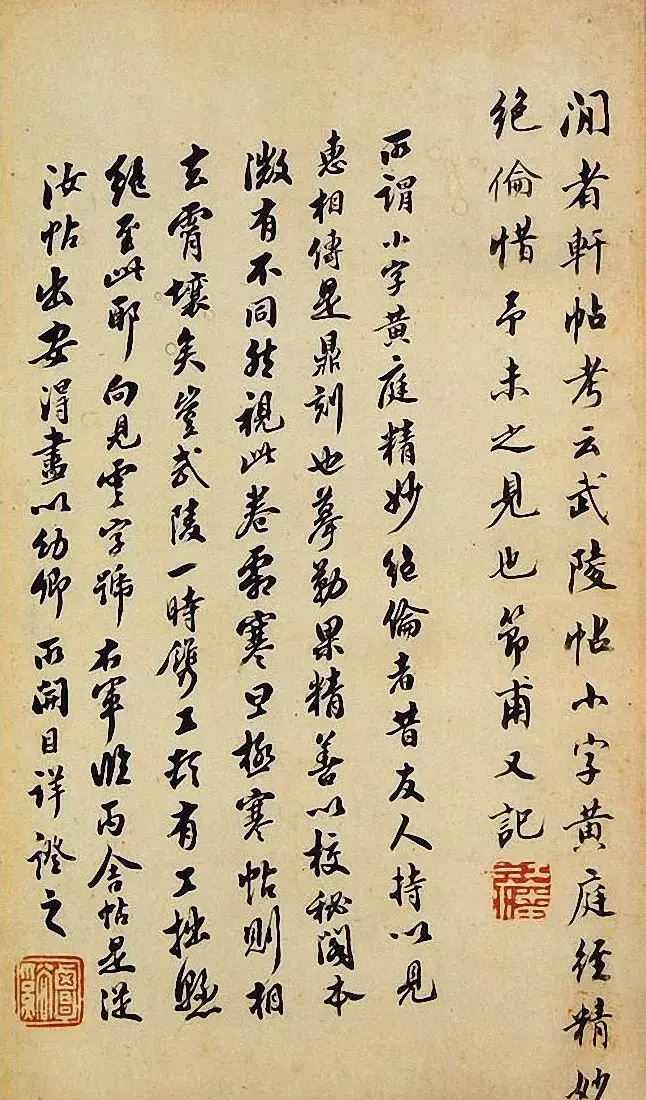 閒者軒帖考云武陵帖小字黄庭經精妙
絶倫惜予未之見也節甫又記
所謂小字黄庭精妙絶倫者昔友人持以見
惠相傳是鼎刻也摹勒果精善以校秘閣本
微有不同然視此卷霜寒旦極寒帖則相
去霄壤矣豈武陵一時鐫工頗有工拙懸
絶至此耶向見雲字號右軍臨丙舍帖是從
汝帖出安得盡以幼卿所開目詳證之